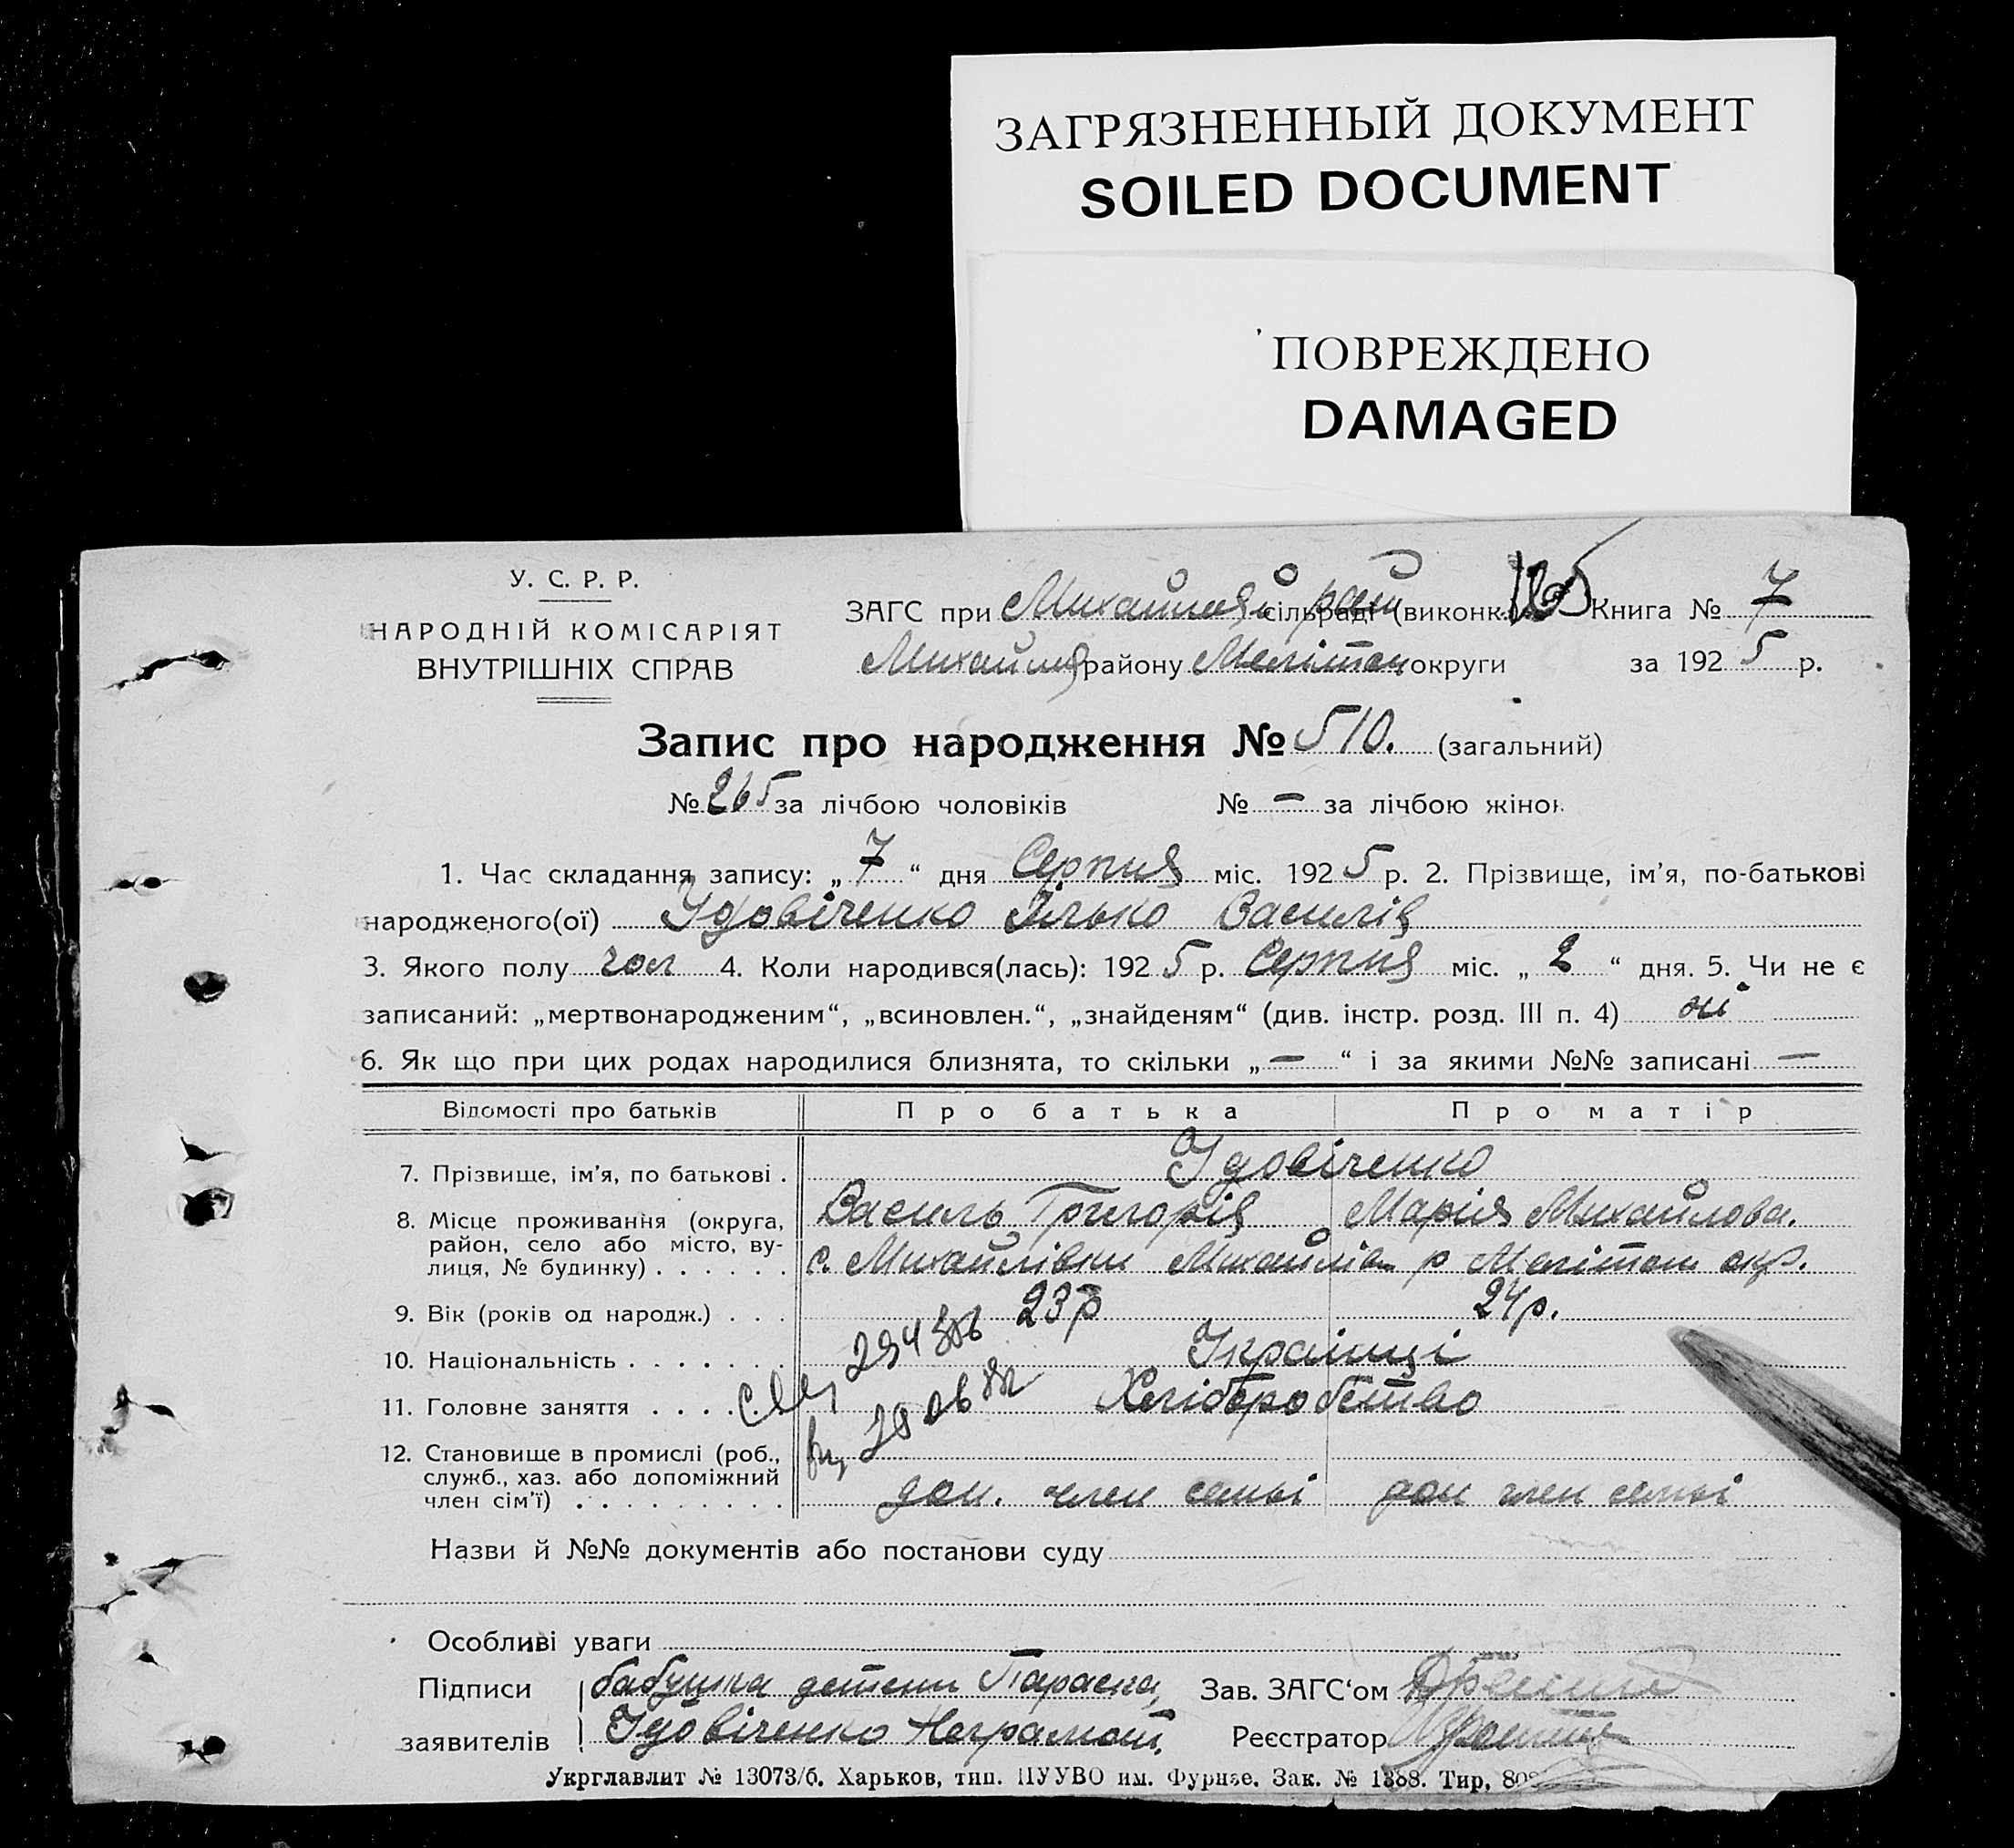 ЗАГРЯЗНЕННЫЙ ДОКУМЕНТ
SOILED DOCUMENT
ПОВРЕЖДЕНО
DAMAGED
У. С. Р. Р.
НАРОДНІЙ КОМІСАРІЯТ
ВНУТРІШНІХ СПРАВ
ЗАГС при Михайлов сільраді (виконк.) Книга № 7
Михайлов району Мелітоп округи за 1925 р.
Запис про народження № 510. (загальний)
№ 265 за лічбою чоловіків № — за лічбою жінок
1. Час складання запису: „7“ дня Серпня міс. 1925 р. 2. Прізвище, ім’я, по-батькові
народженого(ої) Удовіченко Ілько Василів
3. Якого полу чол 4. Коли народився(лась): 1925 р. Серпня міс. „2“ дня. 5. Чи не є
записаний: „мертвонародженим“, „всиновлен.“, „знайденям“ (див. інстр. розд. III п. 4) ні
6. Як що при цих родах народилися близнята, то скільки „—“ і за якими №№ записані —
Відомості про батьків Про батька Про матір
7. Прізвище, ім’я, по батькові . Удовіченко
Василь Григорів Марія Михайлова.
8. Місце проживання (округа, район, село або місто, вулиця, № будинку) . . . . . . с. Михайлівки Михайлів р Мелітоп окр.
9. Вік (років од народж.) . . . 23 р 24 р.
10. Національність . . . . . . . Українці
11. Головне заняття . . . . . . Хліборобство
12. Становище в промислі (роб.,
служб., хаз. або допоміжний
член сім’ї) . . . . . . . . . доп. член семьі доп член семьі
Назви й №№ документів або постанови суду
Особливі уваги
Підписи бабушка детени Параска Зав. ЗАГС‘ом
заявителів Удовіченко Неграмот. Реєстратор
Укрглавлит № 13073/б. Харьков, тип. ПУУВО им. Фрунзе. Зак. № 1388. Тир.